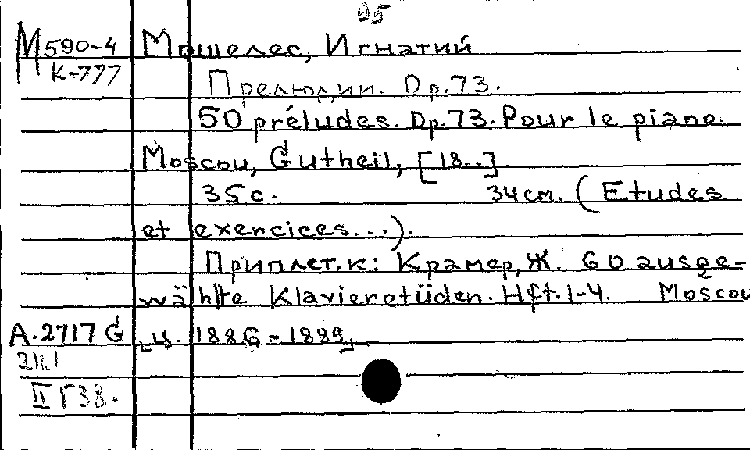 95
М590-4 Мошелес, Игнатий
К-777
Прелюдии. Op.73.
50 préludes. Op.73. Pour le piano.
Moscou, Gutheil, [18..]
35 с. 34 см. (Etudes
et exercices...).
Приплет. к: Крамер, Ж. 60 ausge-
wählte Klavieretüden. Hft. 1-4. Moscou
А.2717 G [ц. 1886-1889]
II Г38.